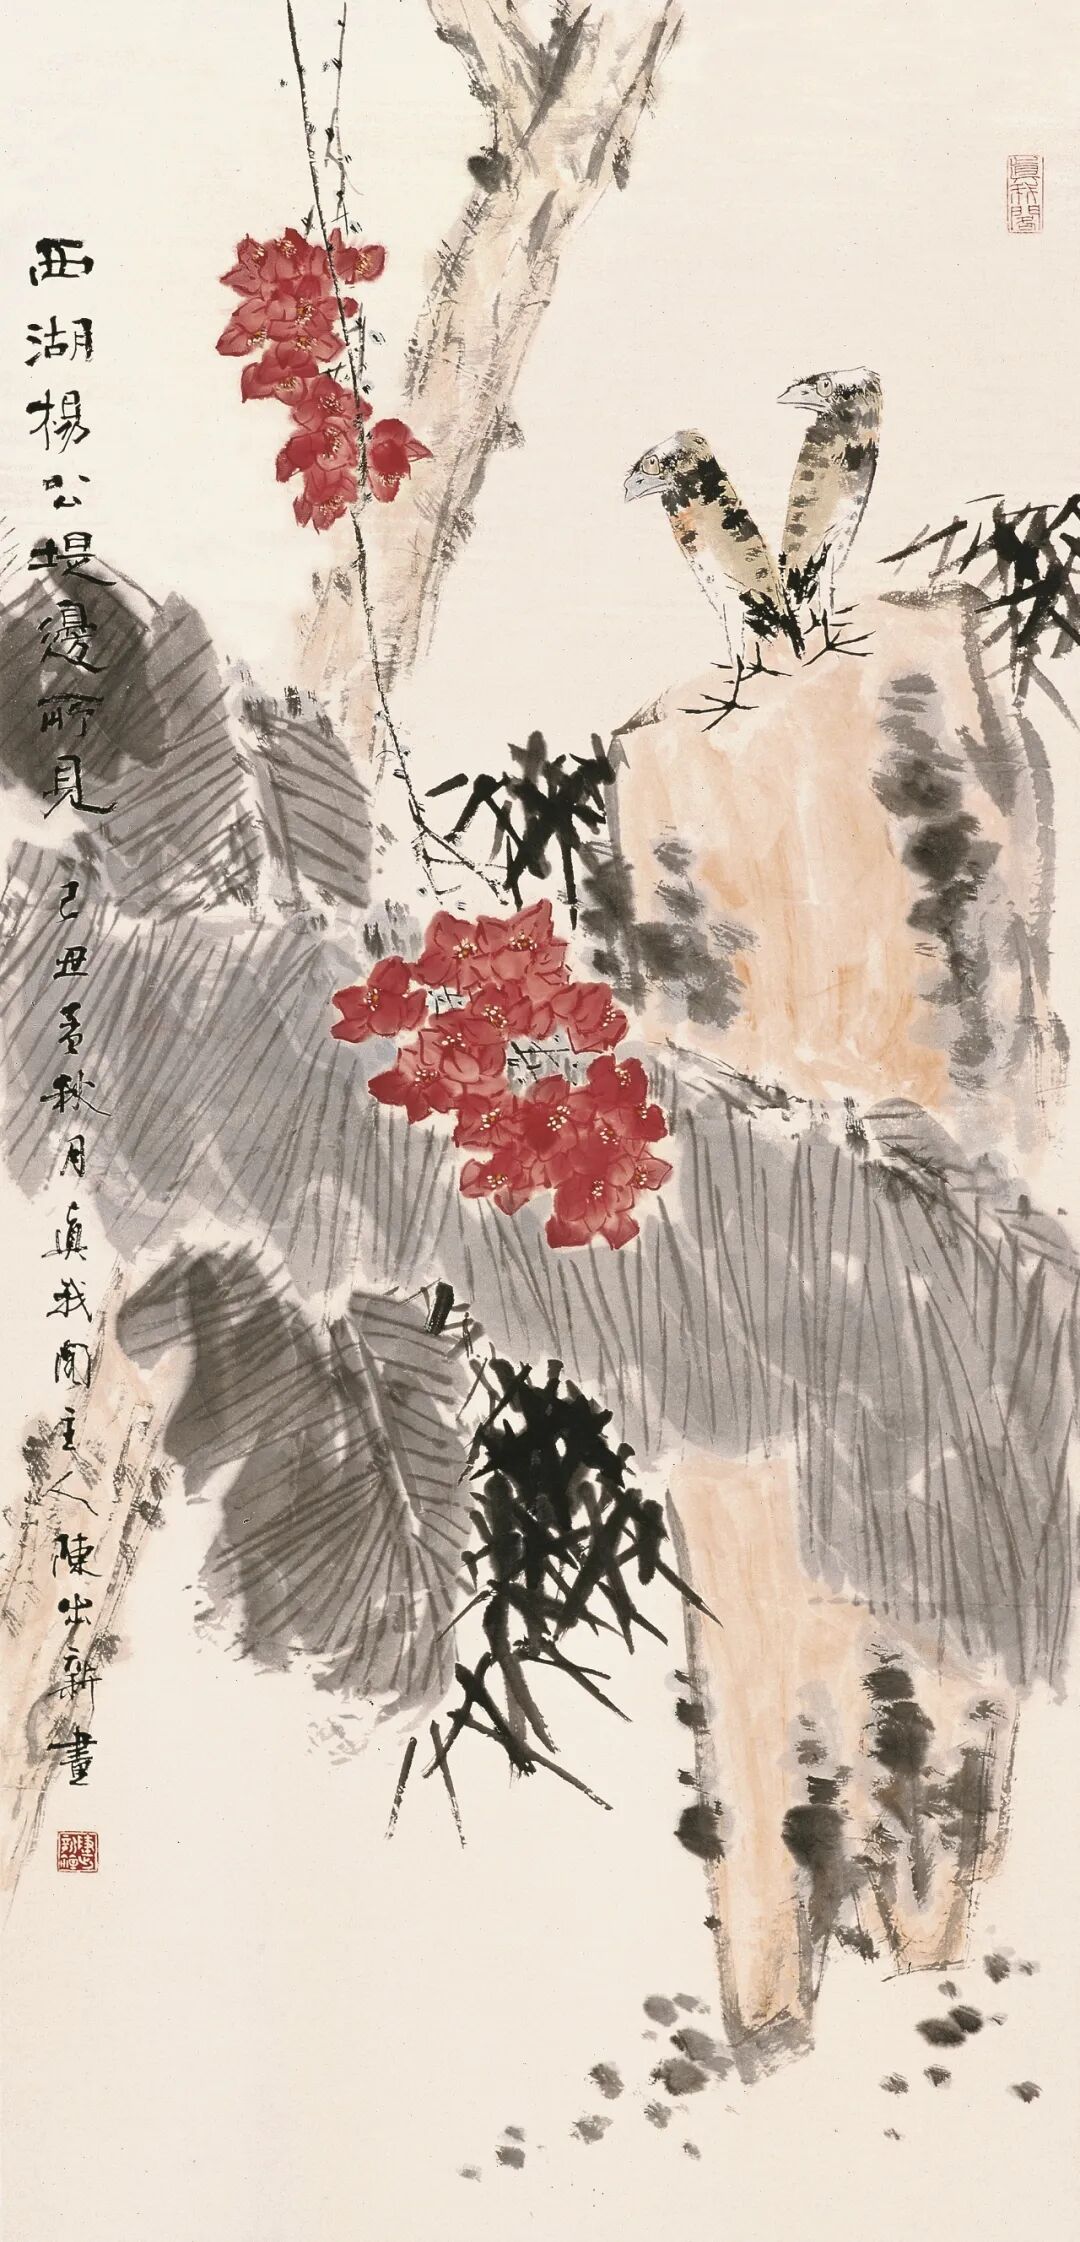 眞我閣
西湖楊公堤邊所見 己丑孟秋月真我閣主人陳出新畫